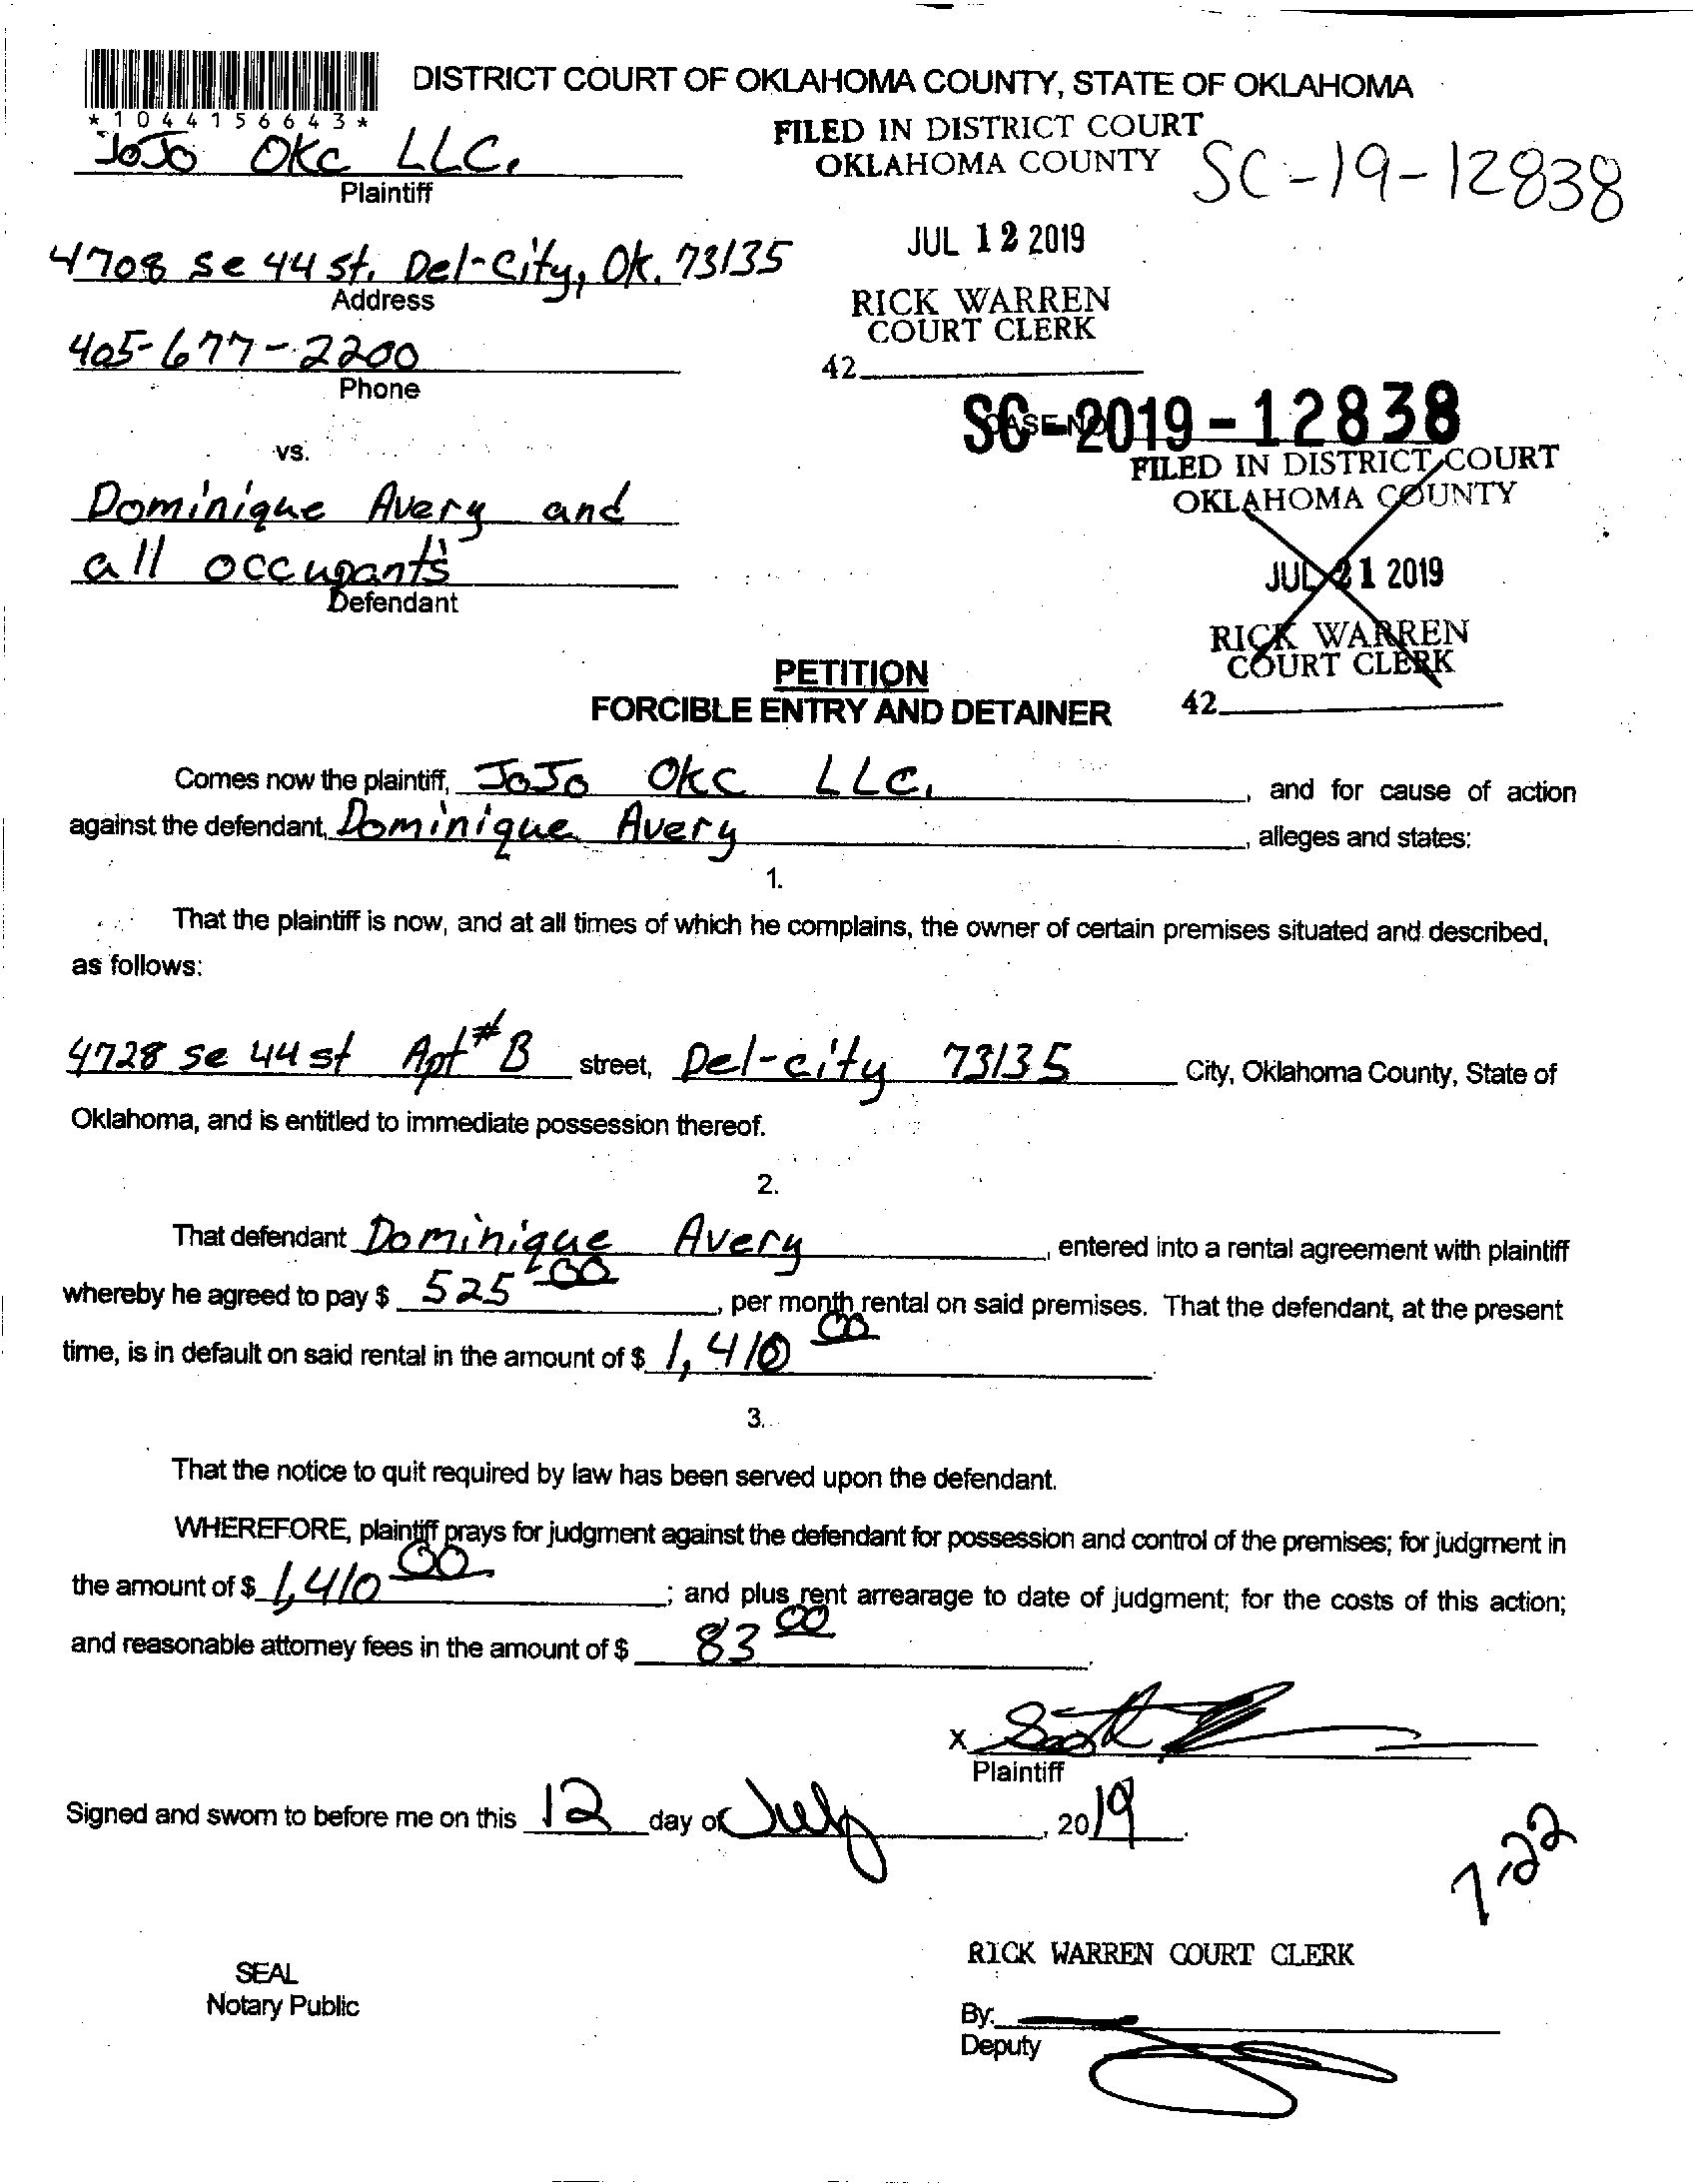 DISTRICT COURT OF OKLAHOMA COUNTY, STATE OF OKLAHOMA
*1044156643*
FILED IN DISTRICT COURT
OKLAHOMA COUNTY
SC-19-12838
JoJo OKC LLC.
Plaintiff
JUL 12 2019
4708 se 44 st. Del-City, Ok. 73135
Address
RICK WARREN
COURT CLERK
405-677-2200
Phone
42
CASE NO.
SC-2019-12838
vs.
FILED IN DISTRICT COURT
OKLAHOMA COUNTY
Dominique Avery and
all occupants
Defendant
JUL 21 2019
RICK WARREN
COURT CLERK
42
PETITION
FORCIBLE ENTRY AND DETAINER
Comes now the plaintiff, JoJo OKC LLC. , and for cause of action
against the defendant, Dominique Avery , alleges and states:
1.
That the plaintiff is now, and at all times of which he complains, the owner of certain premises situated and described,
as follows:
4728 se 44 st Apt #B street, Del-city 73135 City, Oklahoma County, State of
Oklahoma, and is entitled to immediate possession thereof.
2.
That defendant Dominique Avery , entered into a rental agreement with plaintiff
whereby he agreed to pay $ 525 00 , per month rental on said premises. That the defendant, at the present
time, is in default on said rental in the amount of $ 1,410 00 .
3.
That the notice to quit required by law has been served upon the defendant.
WHEREFORE, plaintiff prays for judgment against the defendant for possession and control of the premises; for judgment in
the amount of $ 1,410 00 ; and plus rent arrearage to date of judgment; for the costs of this action;
and reasonable attorney fees in the amount of $ 83 00 .
X
Plaintiff
Signed and sworn to before me on this 12 day of July , 2019 .
7-22
RICK WARREN COURT CLERK
SEAL
Notary Public
By:
Deputy